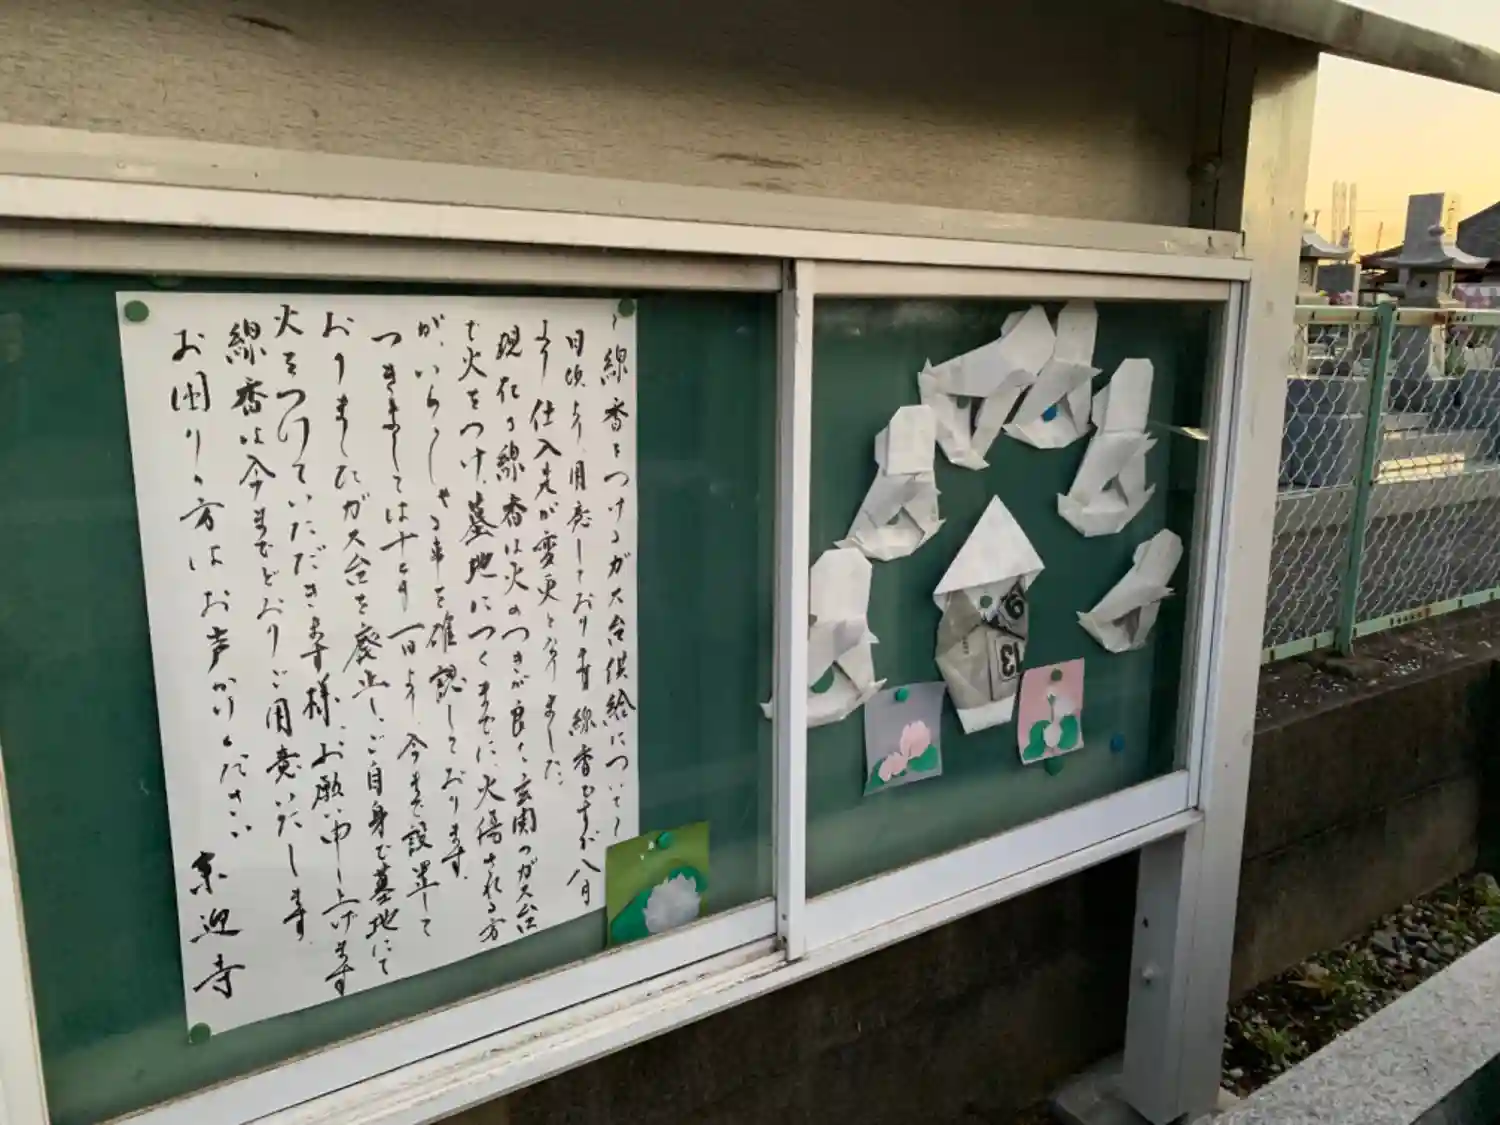 〜線香をつけるガス台供給について〜
日頃より、用意しております線香ですが八月
より仕入先が変更となりました。
現在の線香は火のつきが良く玄関のガス台
で火をつけ、墓地につくまでに、火傷される方
が、いらっしゃる事を確認しております。
つきましては十月一日より、今まで設置して
おりましたガス台を廃止し、ご自身で墓地にて
火をつけていただきます様、お願い申し上げます
線香は今までどおりご用意いたします。
お困りの方はお声かけください
来迎寺
9
13